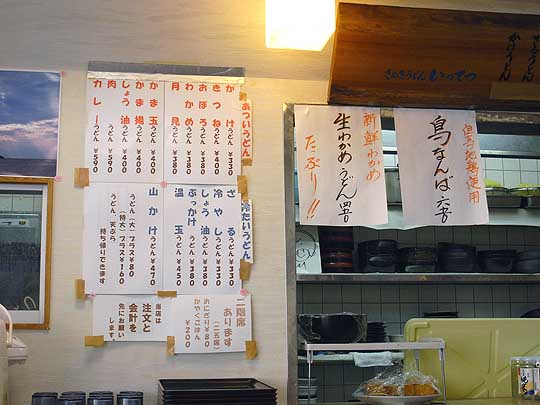 あついうどん
かけうどん ¥330
きつねうどん ¥400
おぼろうどん ¥380
わかめうどん ¥380
月見うどん ¥380
かま玉うどん ¥400
かま揚うどん ¥400
しょう油うどん ¥400
肉うどん ¥500
カレーうどん ¥590
冷たいうどん
ざるうどん ¥330
冷やしうどん ¥330
しょう油うどん ¥380
ぶっかけうどん ¥380
温玉うどん ¥450
山かけうどん ¥470
うどん(大)プラス¥80
うどん(特大)プラス¥160
うどん、天ぷら
持ち帰りできます
二階席
あります
(二五席)
おにぎり¥80
かやくごはん
¥200
当店は
注文と
会計を
先にお願い
します。
新鮮わかめ
生わかめうどん
たっぷり!!
鳥なんば
使用
さぬきうどん
かけうどん